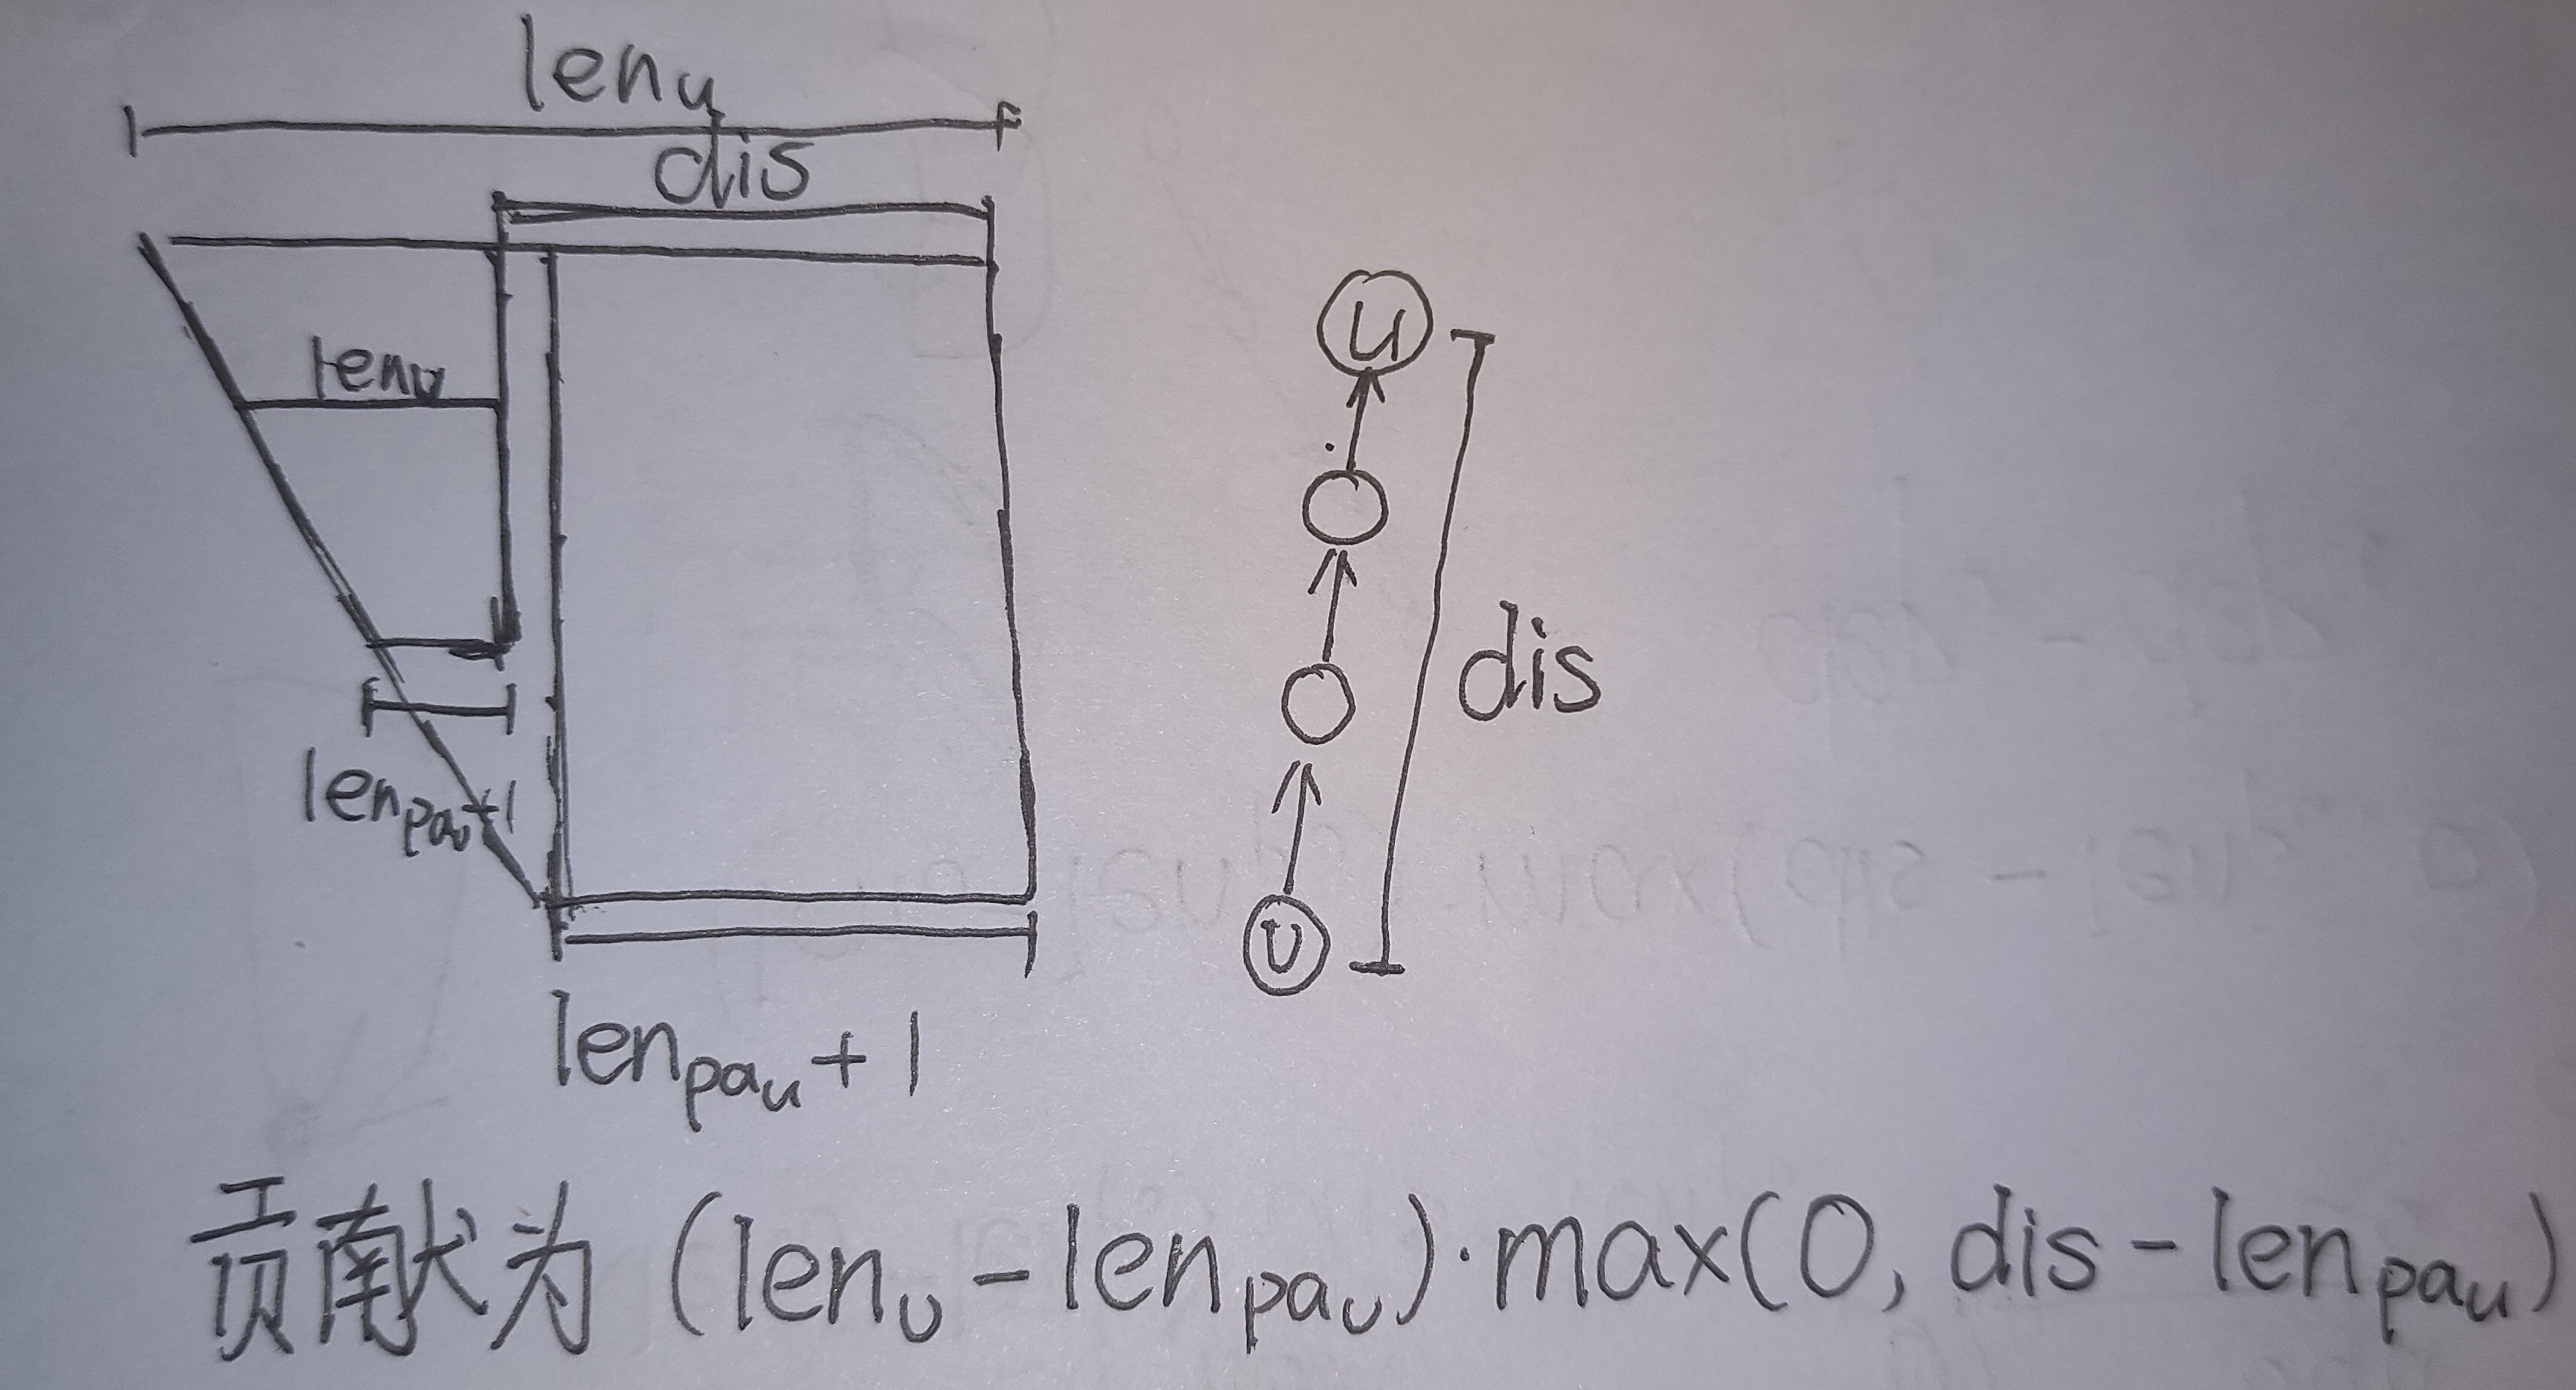 lenᵤ
dis
lenᵥ
len_{paᵥ}+1
len_{paᵤ}+1
u
dis
v
贡献为 (lenᵥ-len_{paᵥ})·max(0, dis-len_{paᵤ})